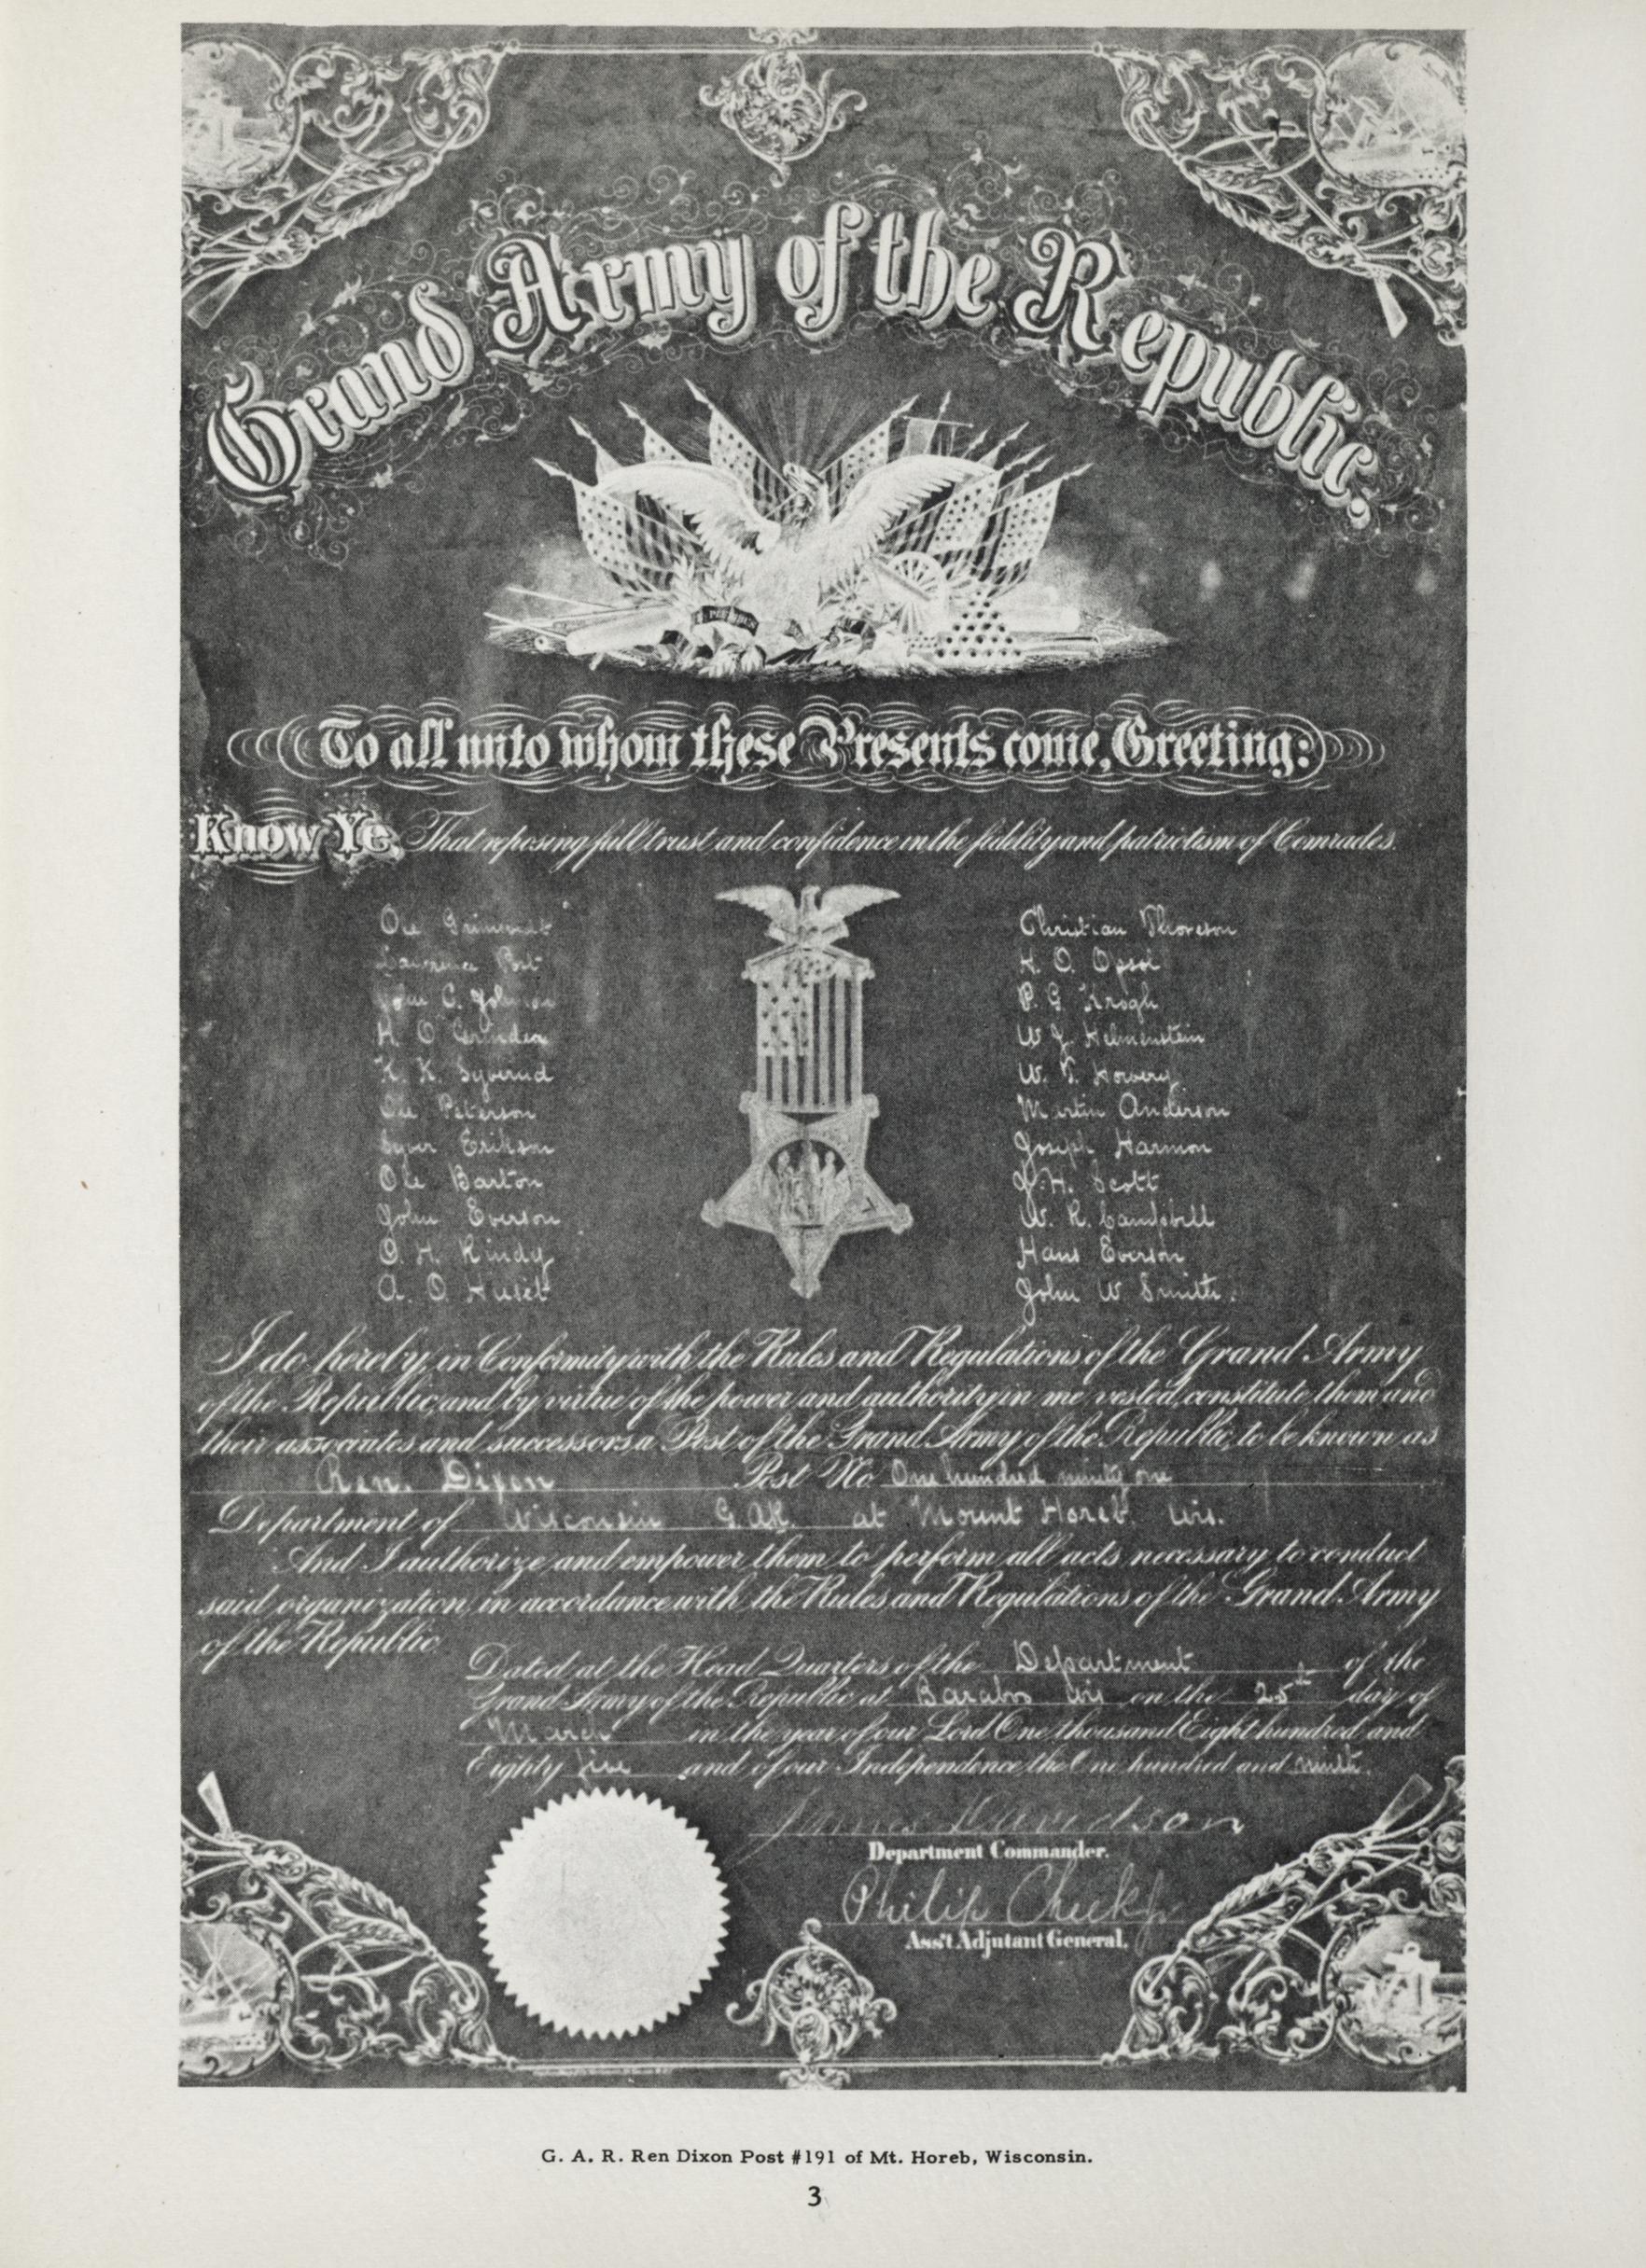 Grand Army of the Republic,
To all unto whom these Presents come, Greeting:
Know Ye, That reposing full trust and confidence in the fidelity and patriotism of Comrades.
Ole
Lawrence
John C. Johnson
H. O.
K. K. Syverud
Ole Peterson
Syver Erikson
Ole Barton
John Everson
O. H. Kindy
A. O. Huset
Christian Thoreson
K. O. Opsal
P. G. Krogh
W. J. Helmenstein
W. T. Howery
Martin Anderson
Joseph Harmon
J. H. Scott
W. R. Campbell
Hans Everson
John W Smith.
I do hereby, in Conformity with the Rules and Regulations of the Grand Army
of the Republic, and by virtue of the power and authority in me vested, constitute them and
their associates and successors a Post of the Grand Army of the Republic, to be known as
Ren. Dixon Post No One hundred ninety one
Department of Wisconsin G.A.R. at Mount Horeb. Wis.
And I authorize and empower them to perform all acts necessary to conduct
said organization, in accordance with the Rules and Regulations of the Grand Army
of the Republic.
Dated at the Head Quarters of the Department of the
Grand Army of the Republic, at Baraboo Wis on the 25th day of
March in the year of our Lord One thousand Eight hundred and
Eighty five and of our Independence the One hundred and ninth.
James Davidson
Department Commander.
Philip Cheek Jr
Ass't Adjutant General.
G. A. R. Ren Dixon Post #191 of Mt. Horeb, Wisconsin.
3